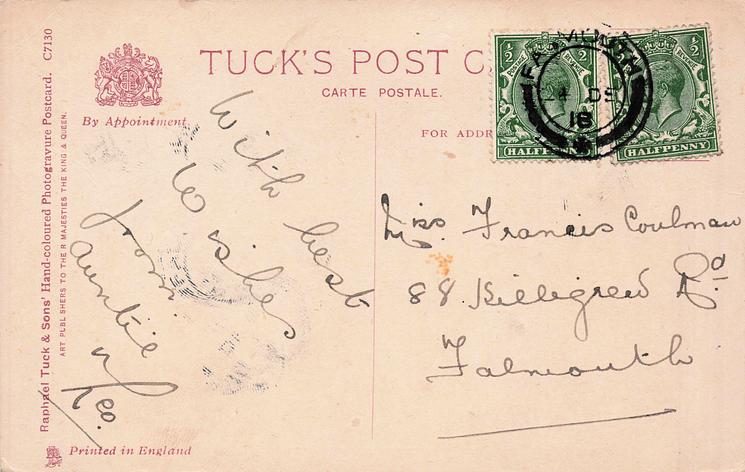 TUCK'S POST C
CARTE POSTALE.
By Appointment
FOR ADDR
Raphael Tuck & Sons' Hand-coloured Photogravure Postcard. C7130
ART PUBLISHERS TO THEIR MAJESTIES THE KING & QUEEN.
Printed in England
With best
Wishes
from
auntie
Leo.
Miss Francis Coulman
88 Killigrew Rd
Falmouth
FALMOUTH
4 DE
18
½ ½
HALFPENNY
½ ½
HALFPENNY